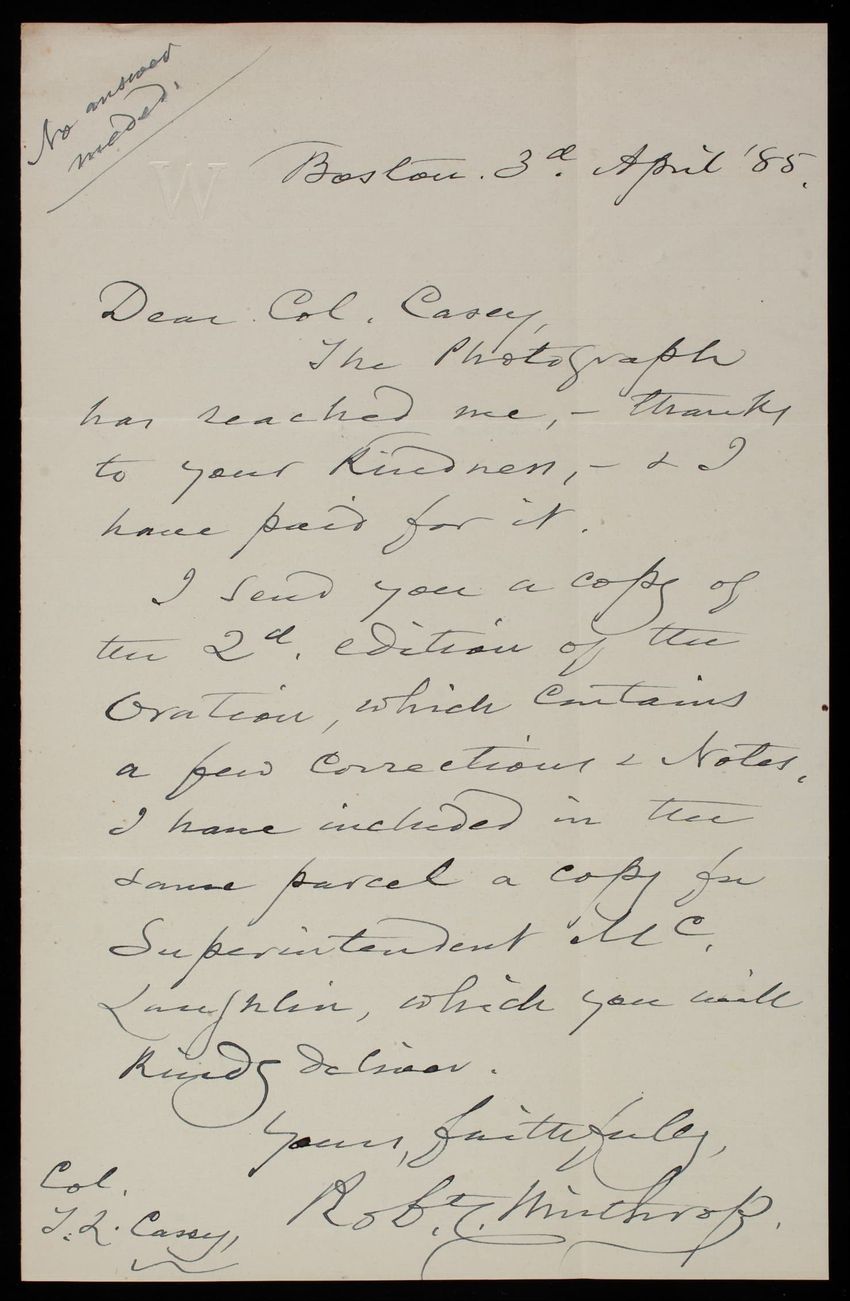 No answer
needed.
W
Boston. 3d. April '85.
Dear Col. Casey,
The Photograph
has reached me, – thanks
to your Kindness, – & I
have paid for it.
I send you a copy of
the 2d. edition of the
Oration, which contains
a few corrections & Notes.
I have included in the
same parcel a copy for
Superintendent Mc.
Laughlin, which you will
Kindly deliver.
Yours, faithfully,
Robt. C. Winthrop.
Col.
T. L. Casey,